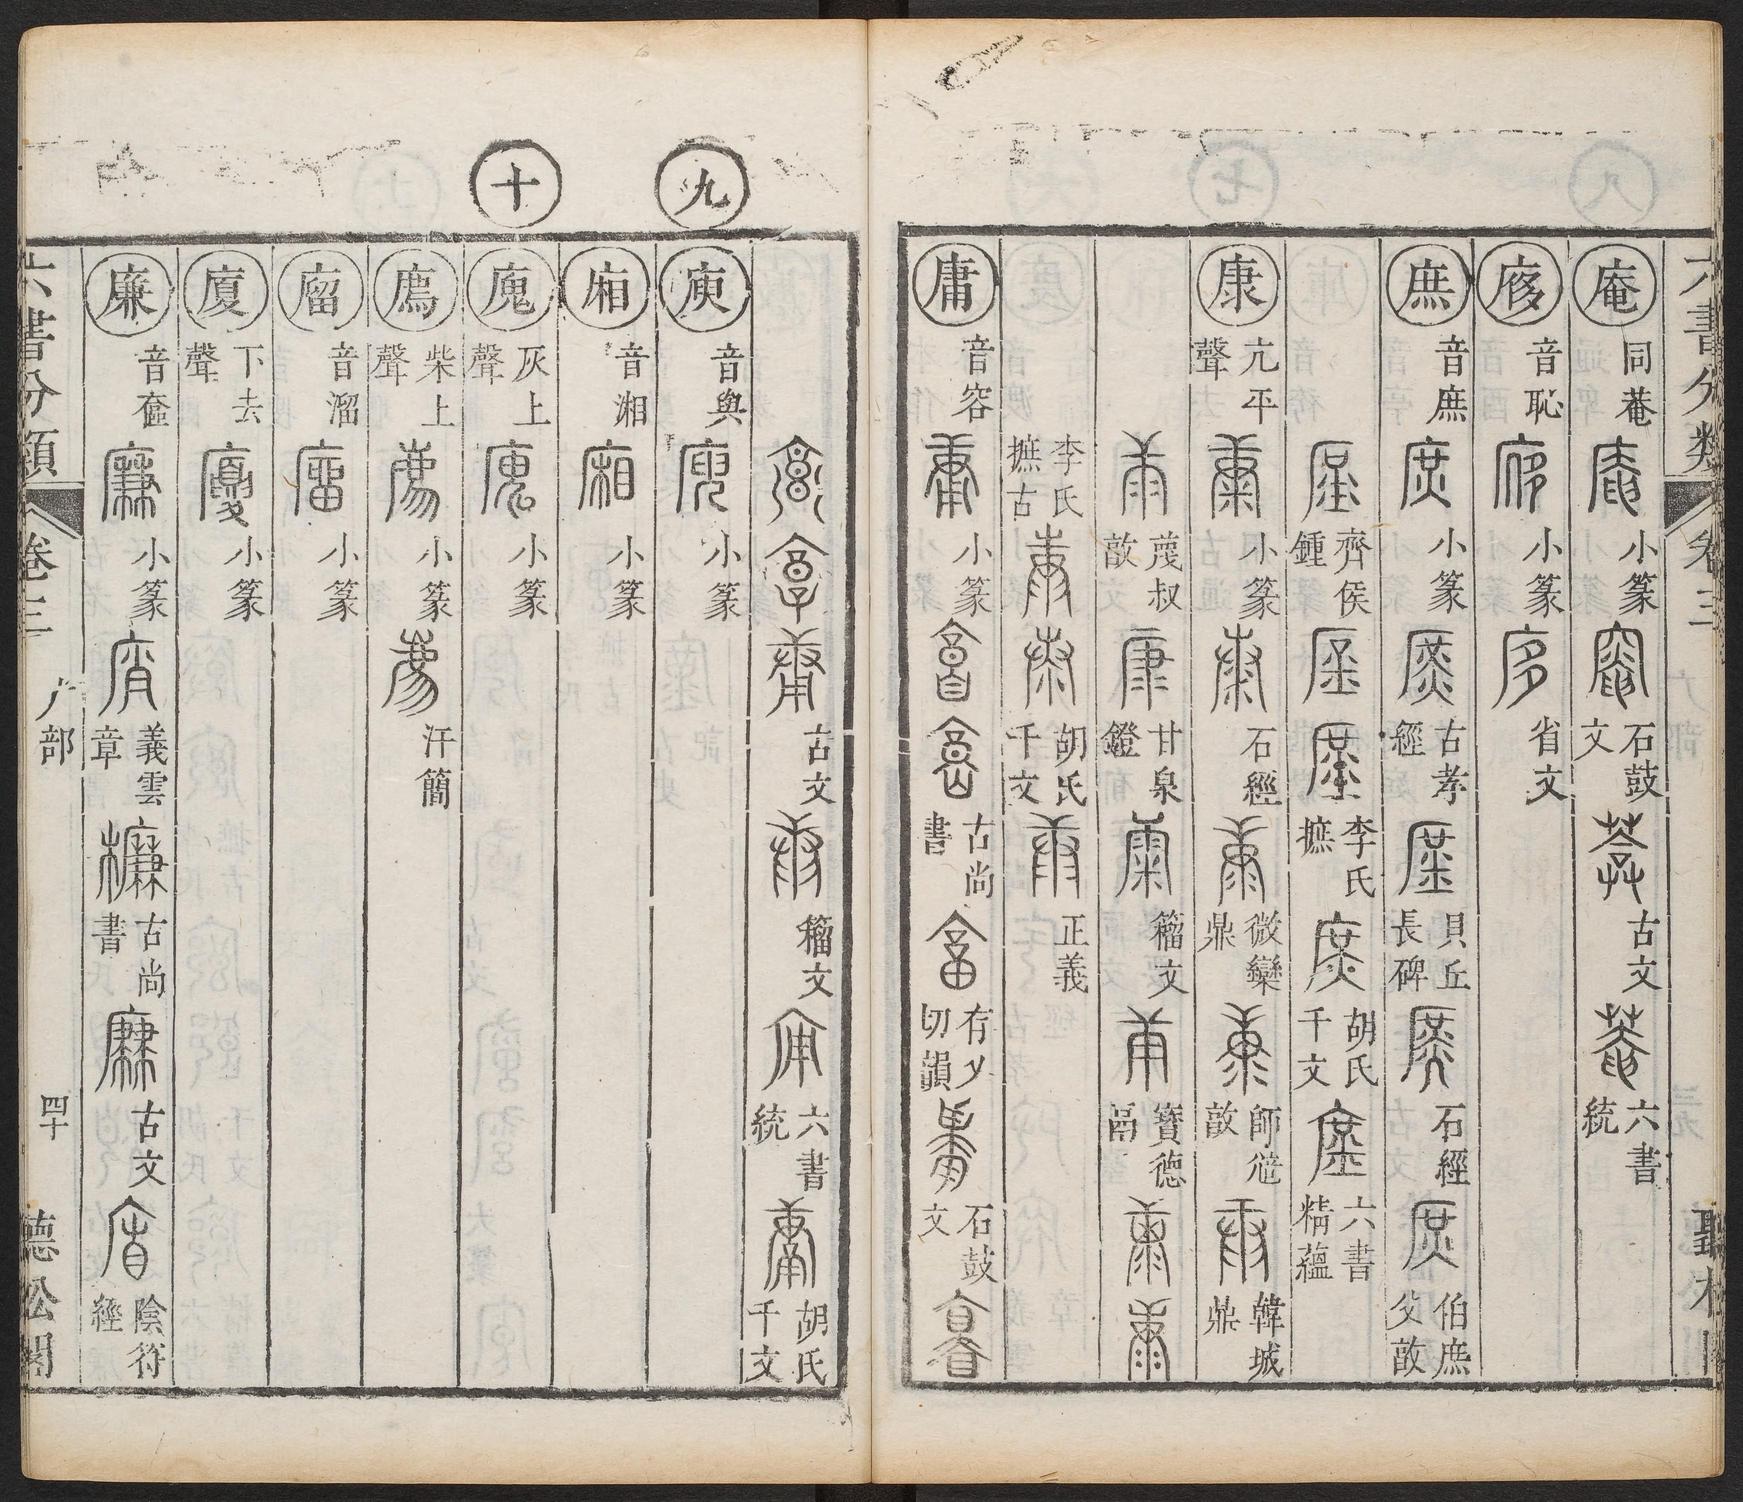 六書分類
卷三
聽松閣
庵 同菴 小篆 石鼓文 古文 六書統
㢋 音恥 小篆 省文
庶 音庶 小篆 古孝經 貝丘長碑 石經 伯庶父敨
齊侯鍾 李氏摭 胡氏千文 六書精蘊
康 亢平聲 小篆 石經 微欒鼎 師𩛥敨 韓城鼎
茂叔敨 甘泉鐙 籀文 寶德鬲
李氏摭古 胡氏千文 正義
庸 音容 小篆 古尚書 存乂切韻 石鼓文
九
十
古文 籀文 六書統 胡氏千文
庾 音與 小篆
廂 音湘 小篆
廆 灰上聲 小篆
廌 柴上聲 小篆 汗簡
廇 音溜 小篆
廈 下去聲 小篆
廉 音奩 小篆 義雲章 古尚書 古文 陰符經
六書分類
卷三
广部
四十
聽松閣